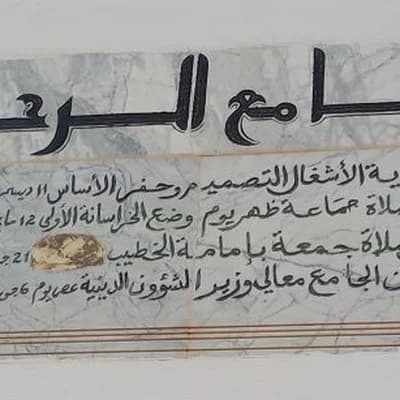 جامع الرحـ
ية الأشغال التصميم وحفر الأساس 11 ديسمـ
صلاة جماعة ظهر يوم وضع الخراسانة الأولى 12
صلاة جمعة بإمامة الخطيب 21
ن الجامع معالي وزير الشؤون الدينية عصر يوم 6